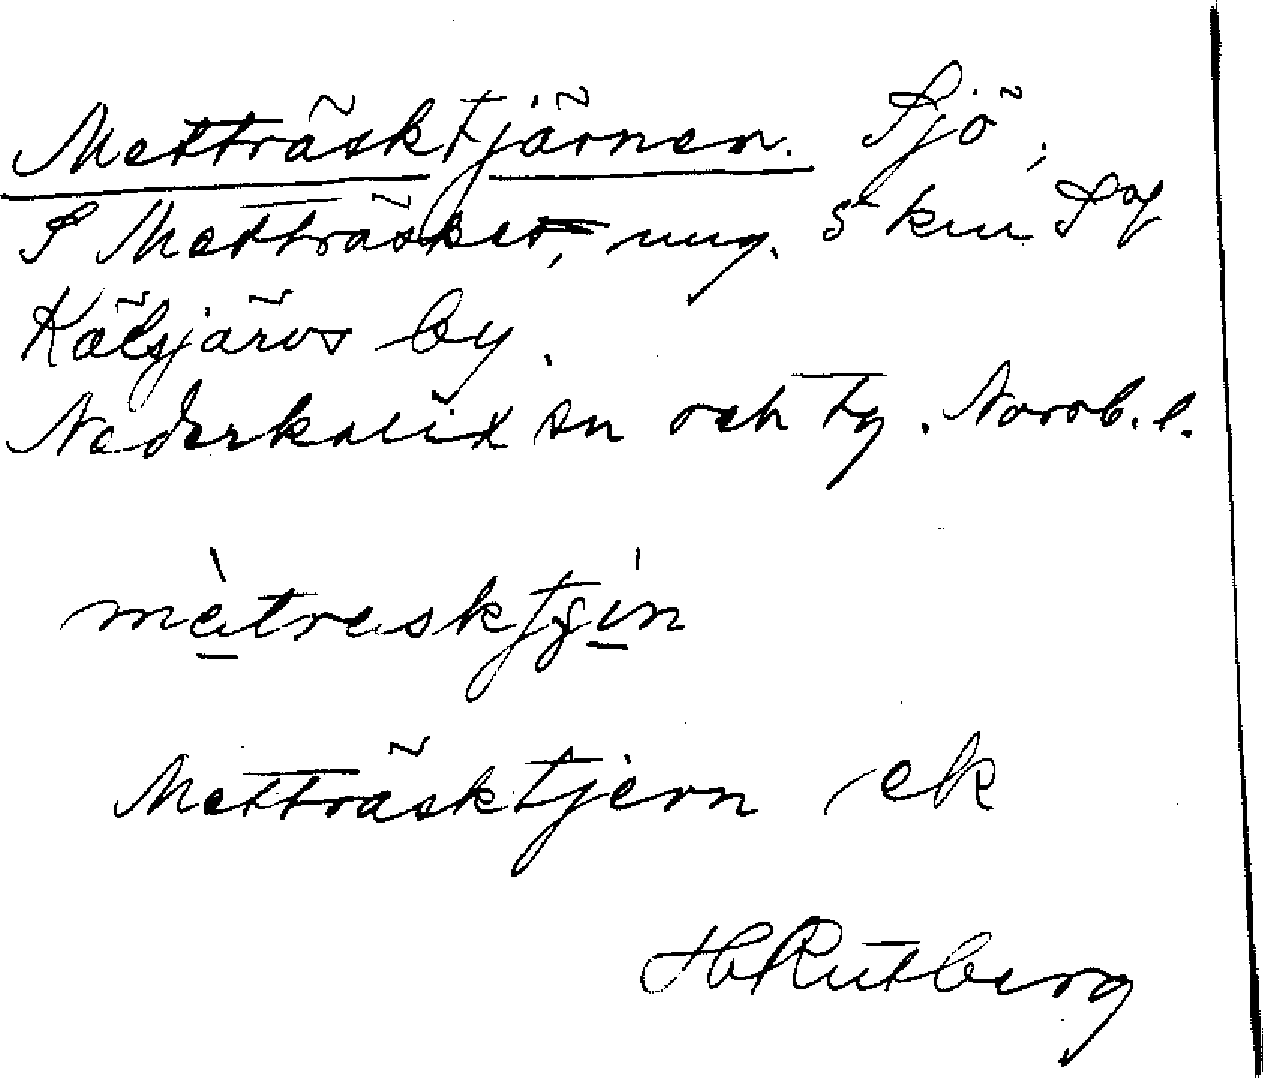 Metträsktjärnen. Sjö,
S Metträsket, ung. 5 km S of
Kälsjärvs by.
Nederkalix sn och tg. Norrb. l.
mètrasktjin
Metträsktjern ek
H Rutberg